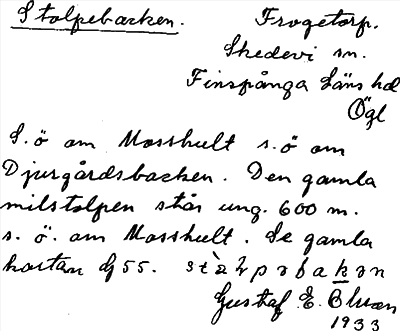 Stolpebacken. Frogetorp.
Skedevi sn.
Finspånga Läns hd
Ögl
S.ö om Mosshult s.ö om
Djurgårdsbacken. Den gamla
milstolpen står ung. 600 m.
s.ö. om Mosshult. Se gamla
kartan G55.
Gustaf E.
1933